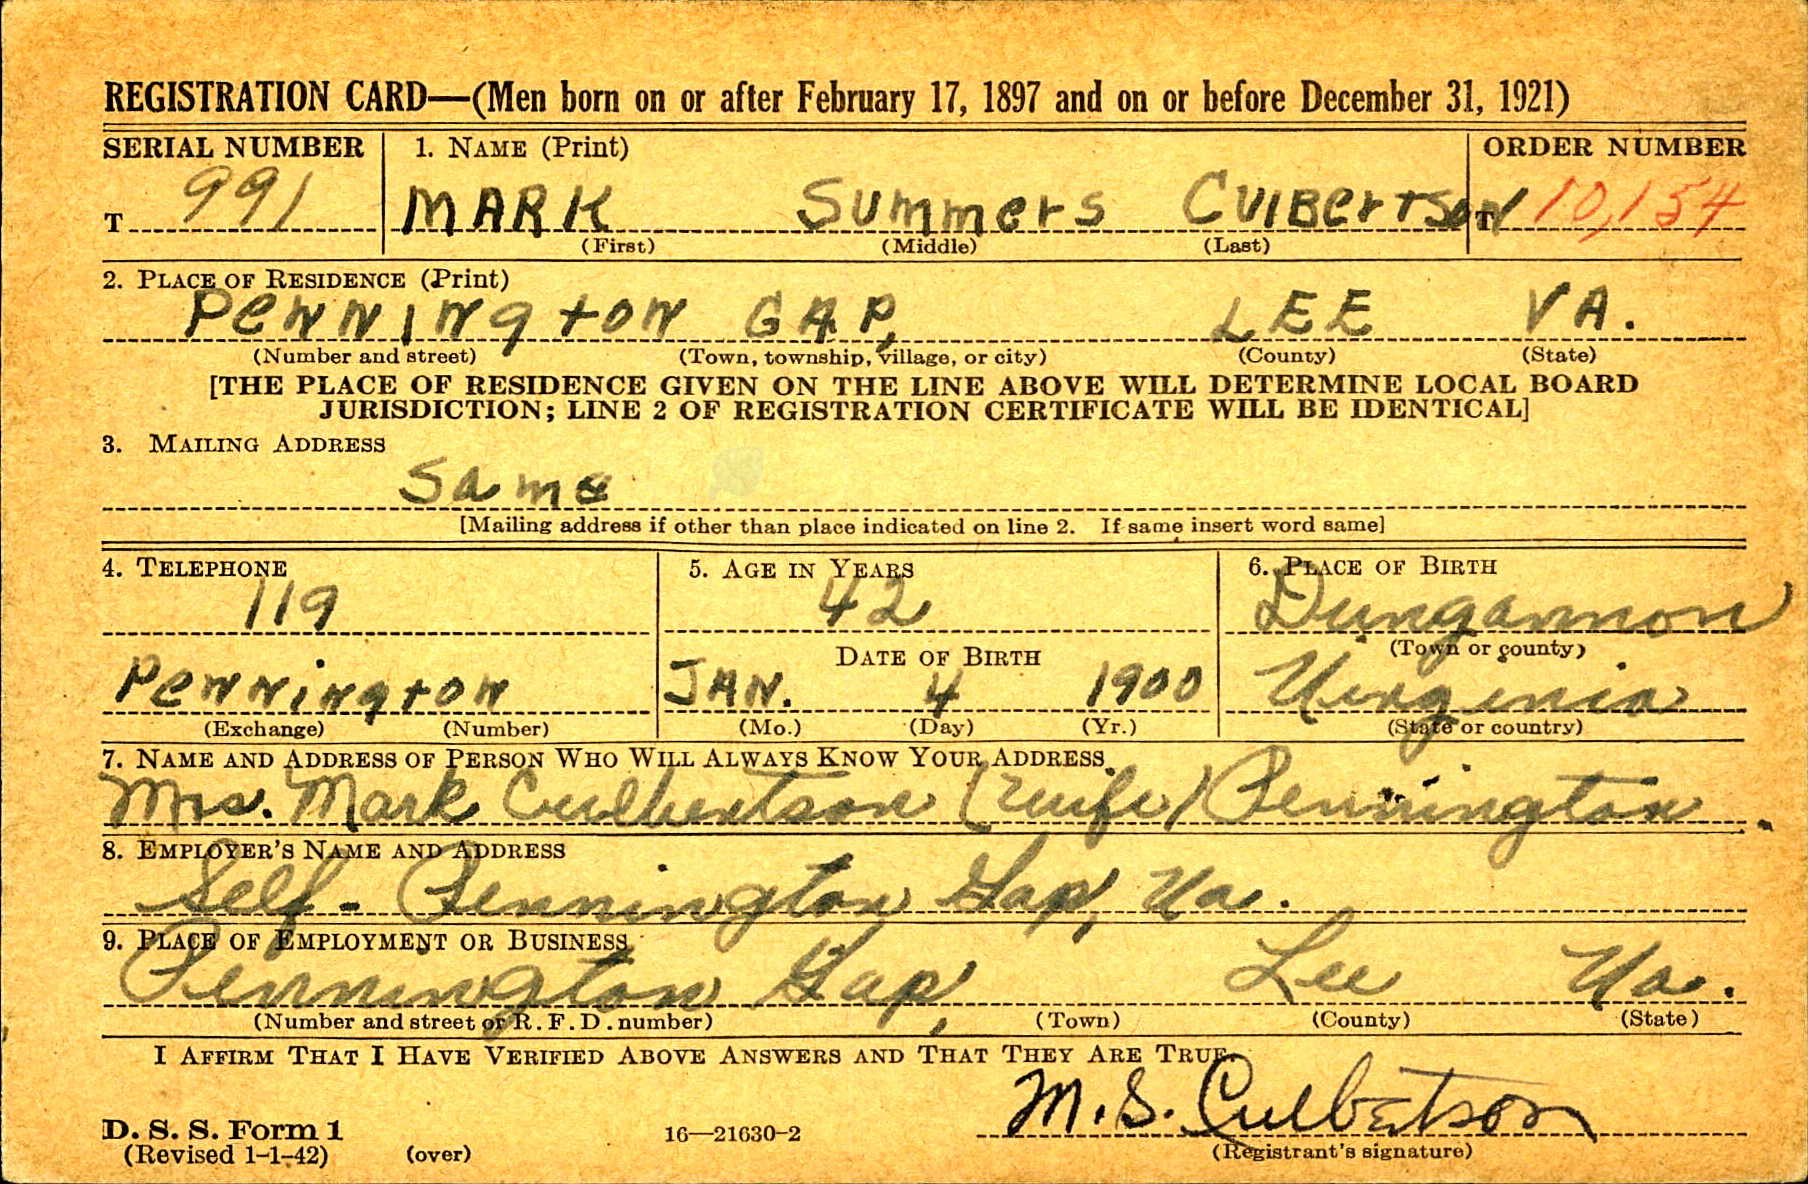 REGISTRATION CARD—(Men born on or after February 17, 1897 and on or before December 31, 1921)
SERIAL NUMBER 1. NAME (Print) ORDER NUMBER
T 991 MARK Summers CulBertsoN T 10,154
(First) (Middle) (Last)
2. PLACE OF RESIDENCE (Print)
PeNNiNgtoN GAP, LEE VA.
(Number and street) (Town, township, village, or city) (County) (State)
[THE PLACE OF RESIDENCE GIVEN ON THE LINE ABOVE WILL DETERMINE LOCAL BOARD
JURISDICTION; LINE 2 OF REGISTRATION CERTIFICATE WILL BE IDENTICAL]
3. MAILING ADDRESS
Same
[Mailing address if other than place indicated on line 2. If same insert word same]
4. TELEPHONE 5. AGE IN YEARS 6. PLACE OF BIRTH
119 42 Dungannon
DATE OF BIRTH (Town or county)
PeNNiNgtoN JAN. 4 1900 Virginia
(Exchange) (Number) (Mo.) (Day) (Yr.) (State or country)
7. NAME AND ADDRESS OF PERSON WHO WILL ALWAYS KNOW YOUR ADDRESS
Mrs. Mark Culbertson (wife) Pennington
8. EMPLOYER'S NAME AND ADDRESS
Self- Pennington Gap, Va.
9. PLACE OF EMPLOYMENT OR BUSINESS
Pennington Gap, Lee Va.
(Number and street or R. F. D. number) (Town) (County) (State)
I AFFIRM THAT I HAVE VERIFIED ABOVE ANSWERS AND THAT THEY ARE TRUE.
M. S. Culbertson
D. S. S. Form 1
(Revised 1-1-42) (over) 16—21630-2 (Registrant's signature)